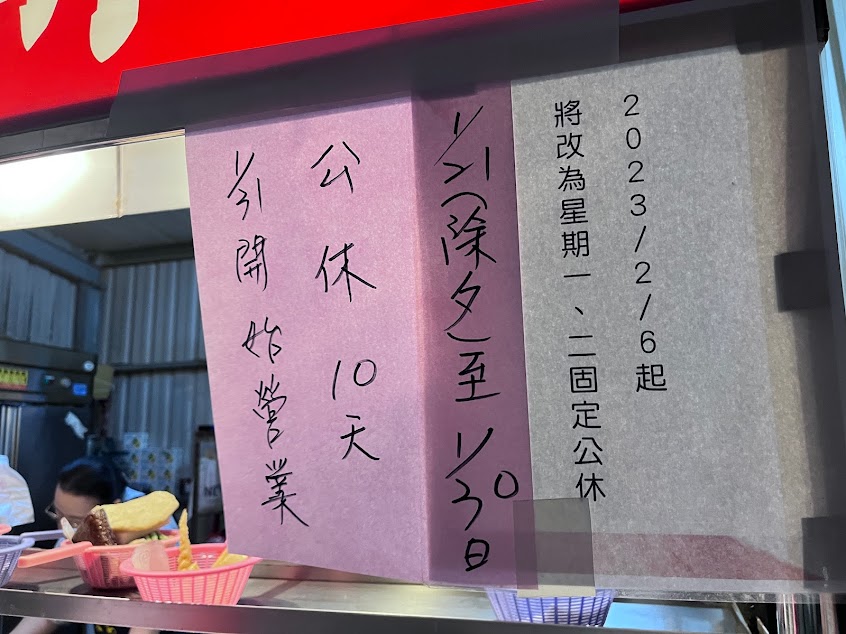 2023/2/6起
將改為星期一、二固定公休
1/21(除夕)至1/30日
公休10天
1/31開始營業